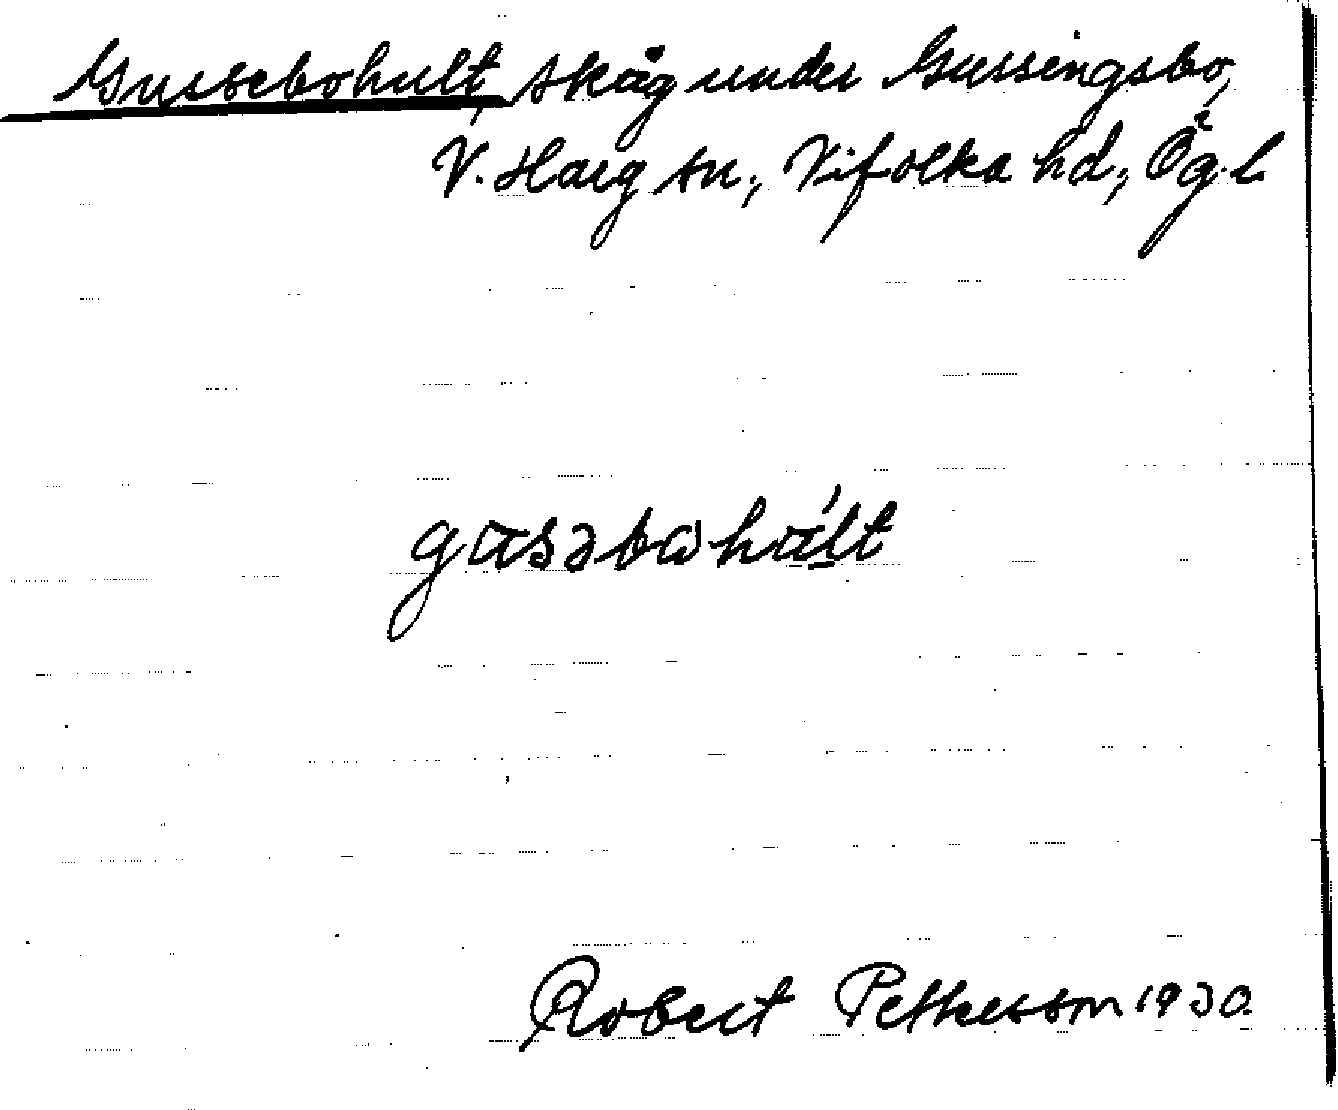 Gussebohult, skog under Gussingsbo,
V. Harg sn, Vifolka hd, Ög. l.
gusəbωhult
Robert Pettersson 1930.